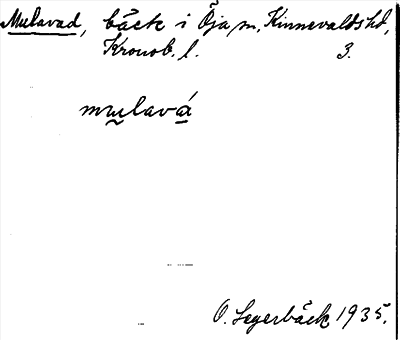 Mulavad, bäck i Öja sn, Kinnevalds hd,
Kronob. l. 3.
mulavá
O. Segerbäck 1935.